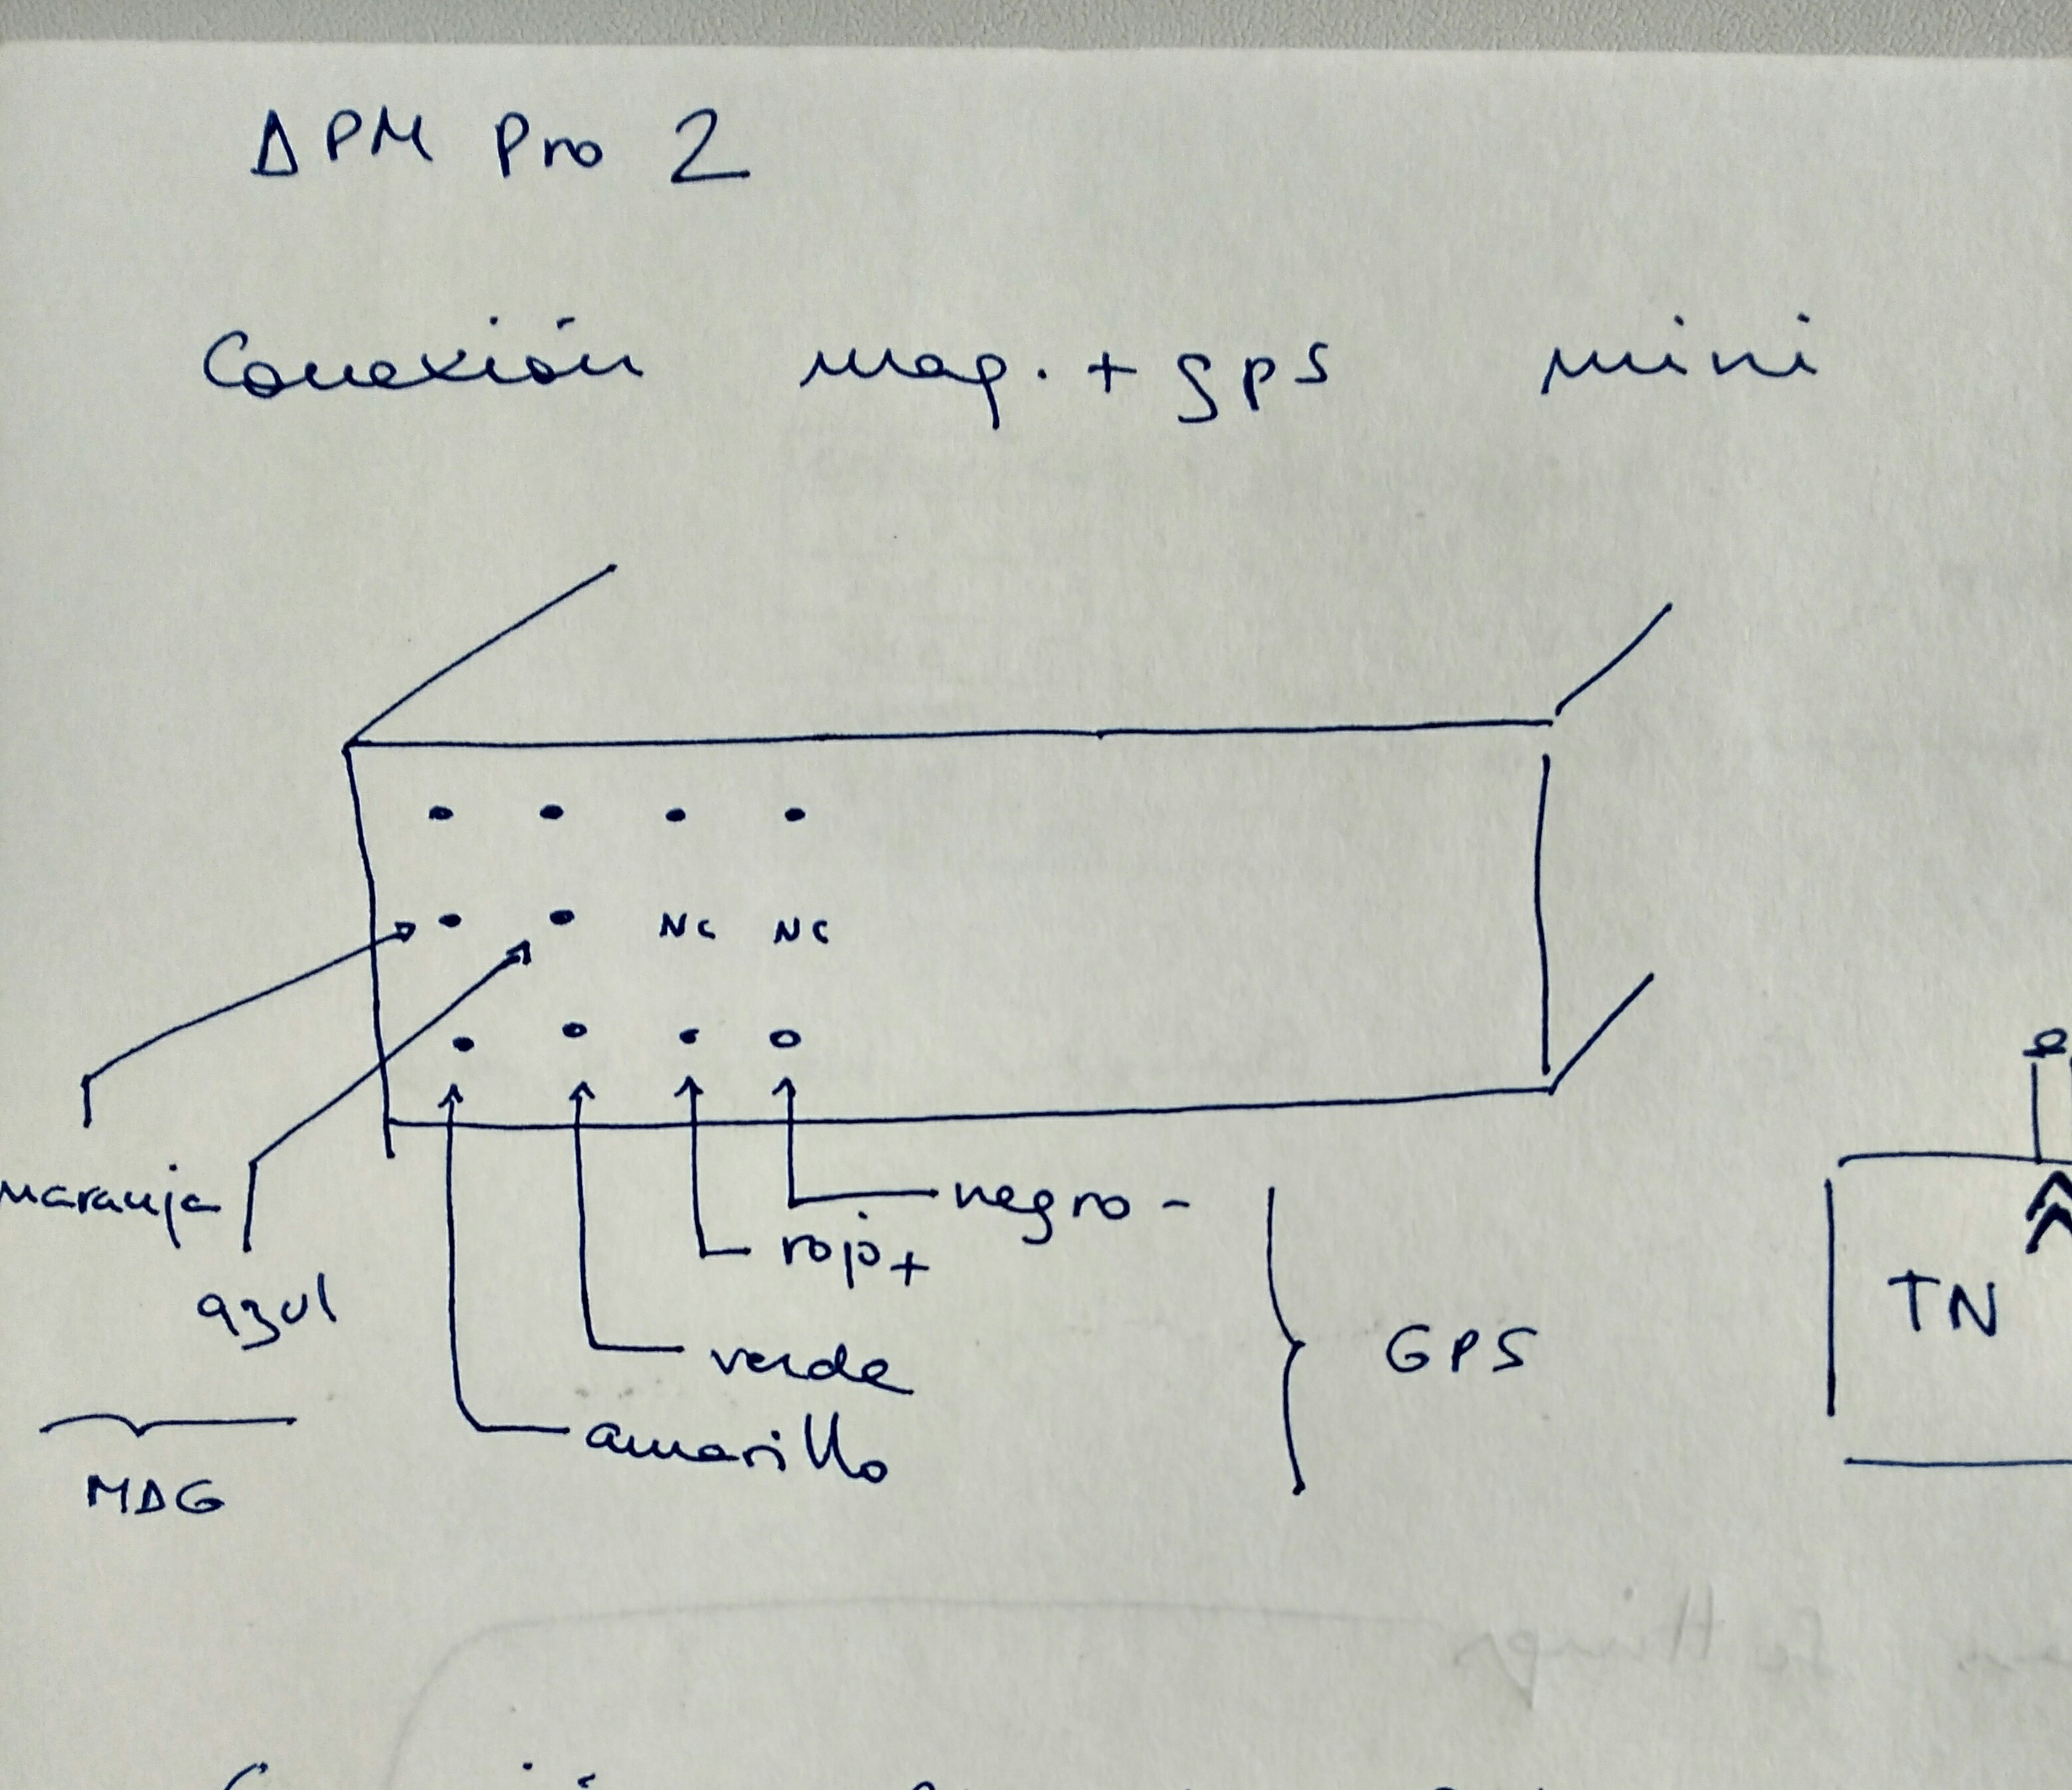 APM Pro 2
Conexión mag. + gps mini
NC NC
maranja
azul
negro -
rojo +
verde
amarillo
MAG
GPS
TN